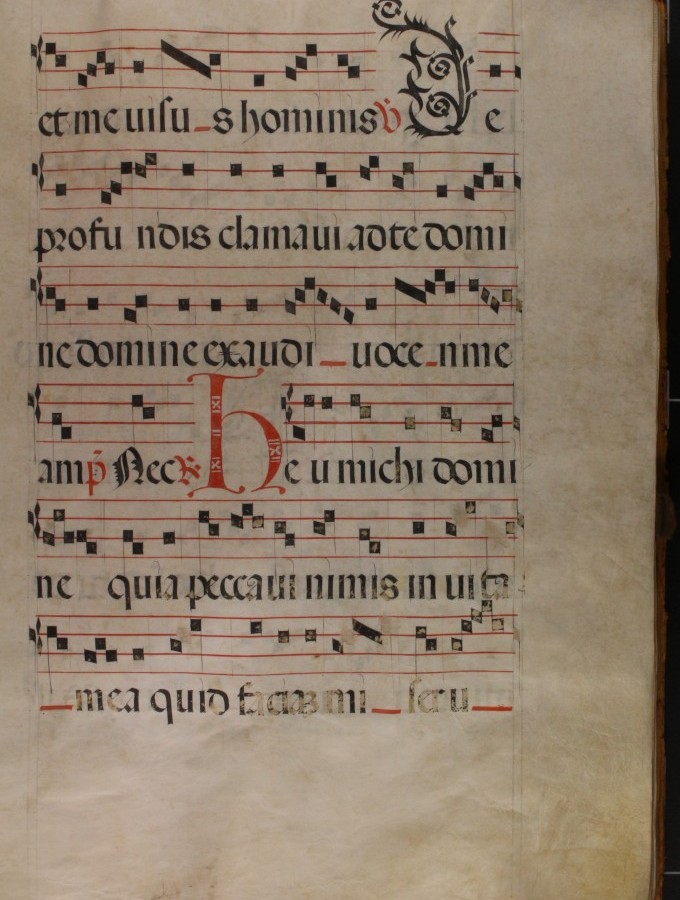 et me uisu s hominis ℣ De
profu ndis clamaui ad te domi
ne domine exaudi uoce nme
am p̄ Nec ℟ He u michi domi
ne quia peccaui nimis in uita
mea quid faciaz mi ser u